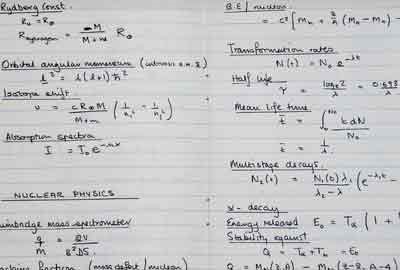 Rydberg Const.
R∞ = R∞
R_hydrogen = M / (M + m) R∞
Orbital angular momentum
l² = l(l+1)ħ²
Isotope shift
υ = cR∞M / (M+m) (1/n₁² - 1/n₂²)
Absorption spectra
I = I₀e^-nαx
NUCLEAR PHYSICS
Bainbridge mass spectrometer
q/M = 2V / B²D
Packing fraction (mass defect / nucleon)
B.E / nucleon
= c² [Mn + Z/A (MH - Mn) -
Transformation rates
N(t) = N₀ e^-λt
Half life
τ = loge2 / λ = 0.693 / λ
Mean life time
t̄ = ∫₀^N₀ t dN / N₀
t̄ = 1/λ
Multistage decays.
N₂(t) = N₁(0) λ₁ / (λ₂ - λ₁) (e^-λ₁t -
α - decay
Energy released E₀ = Tα (1 +
Stability against
Q = Tα + Tb = E₀
Q = M(Z,A) - M(Z-2, A-4)